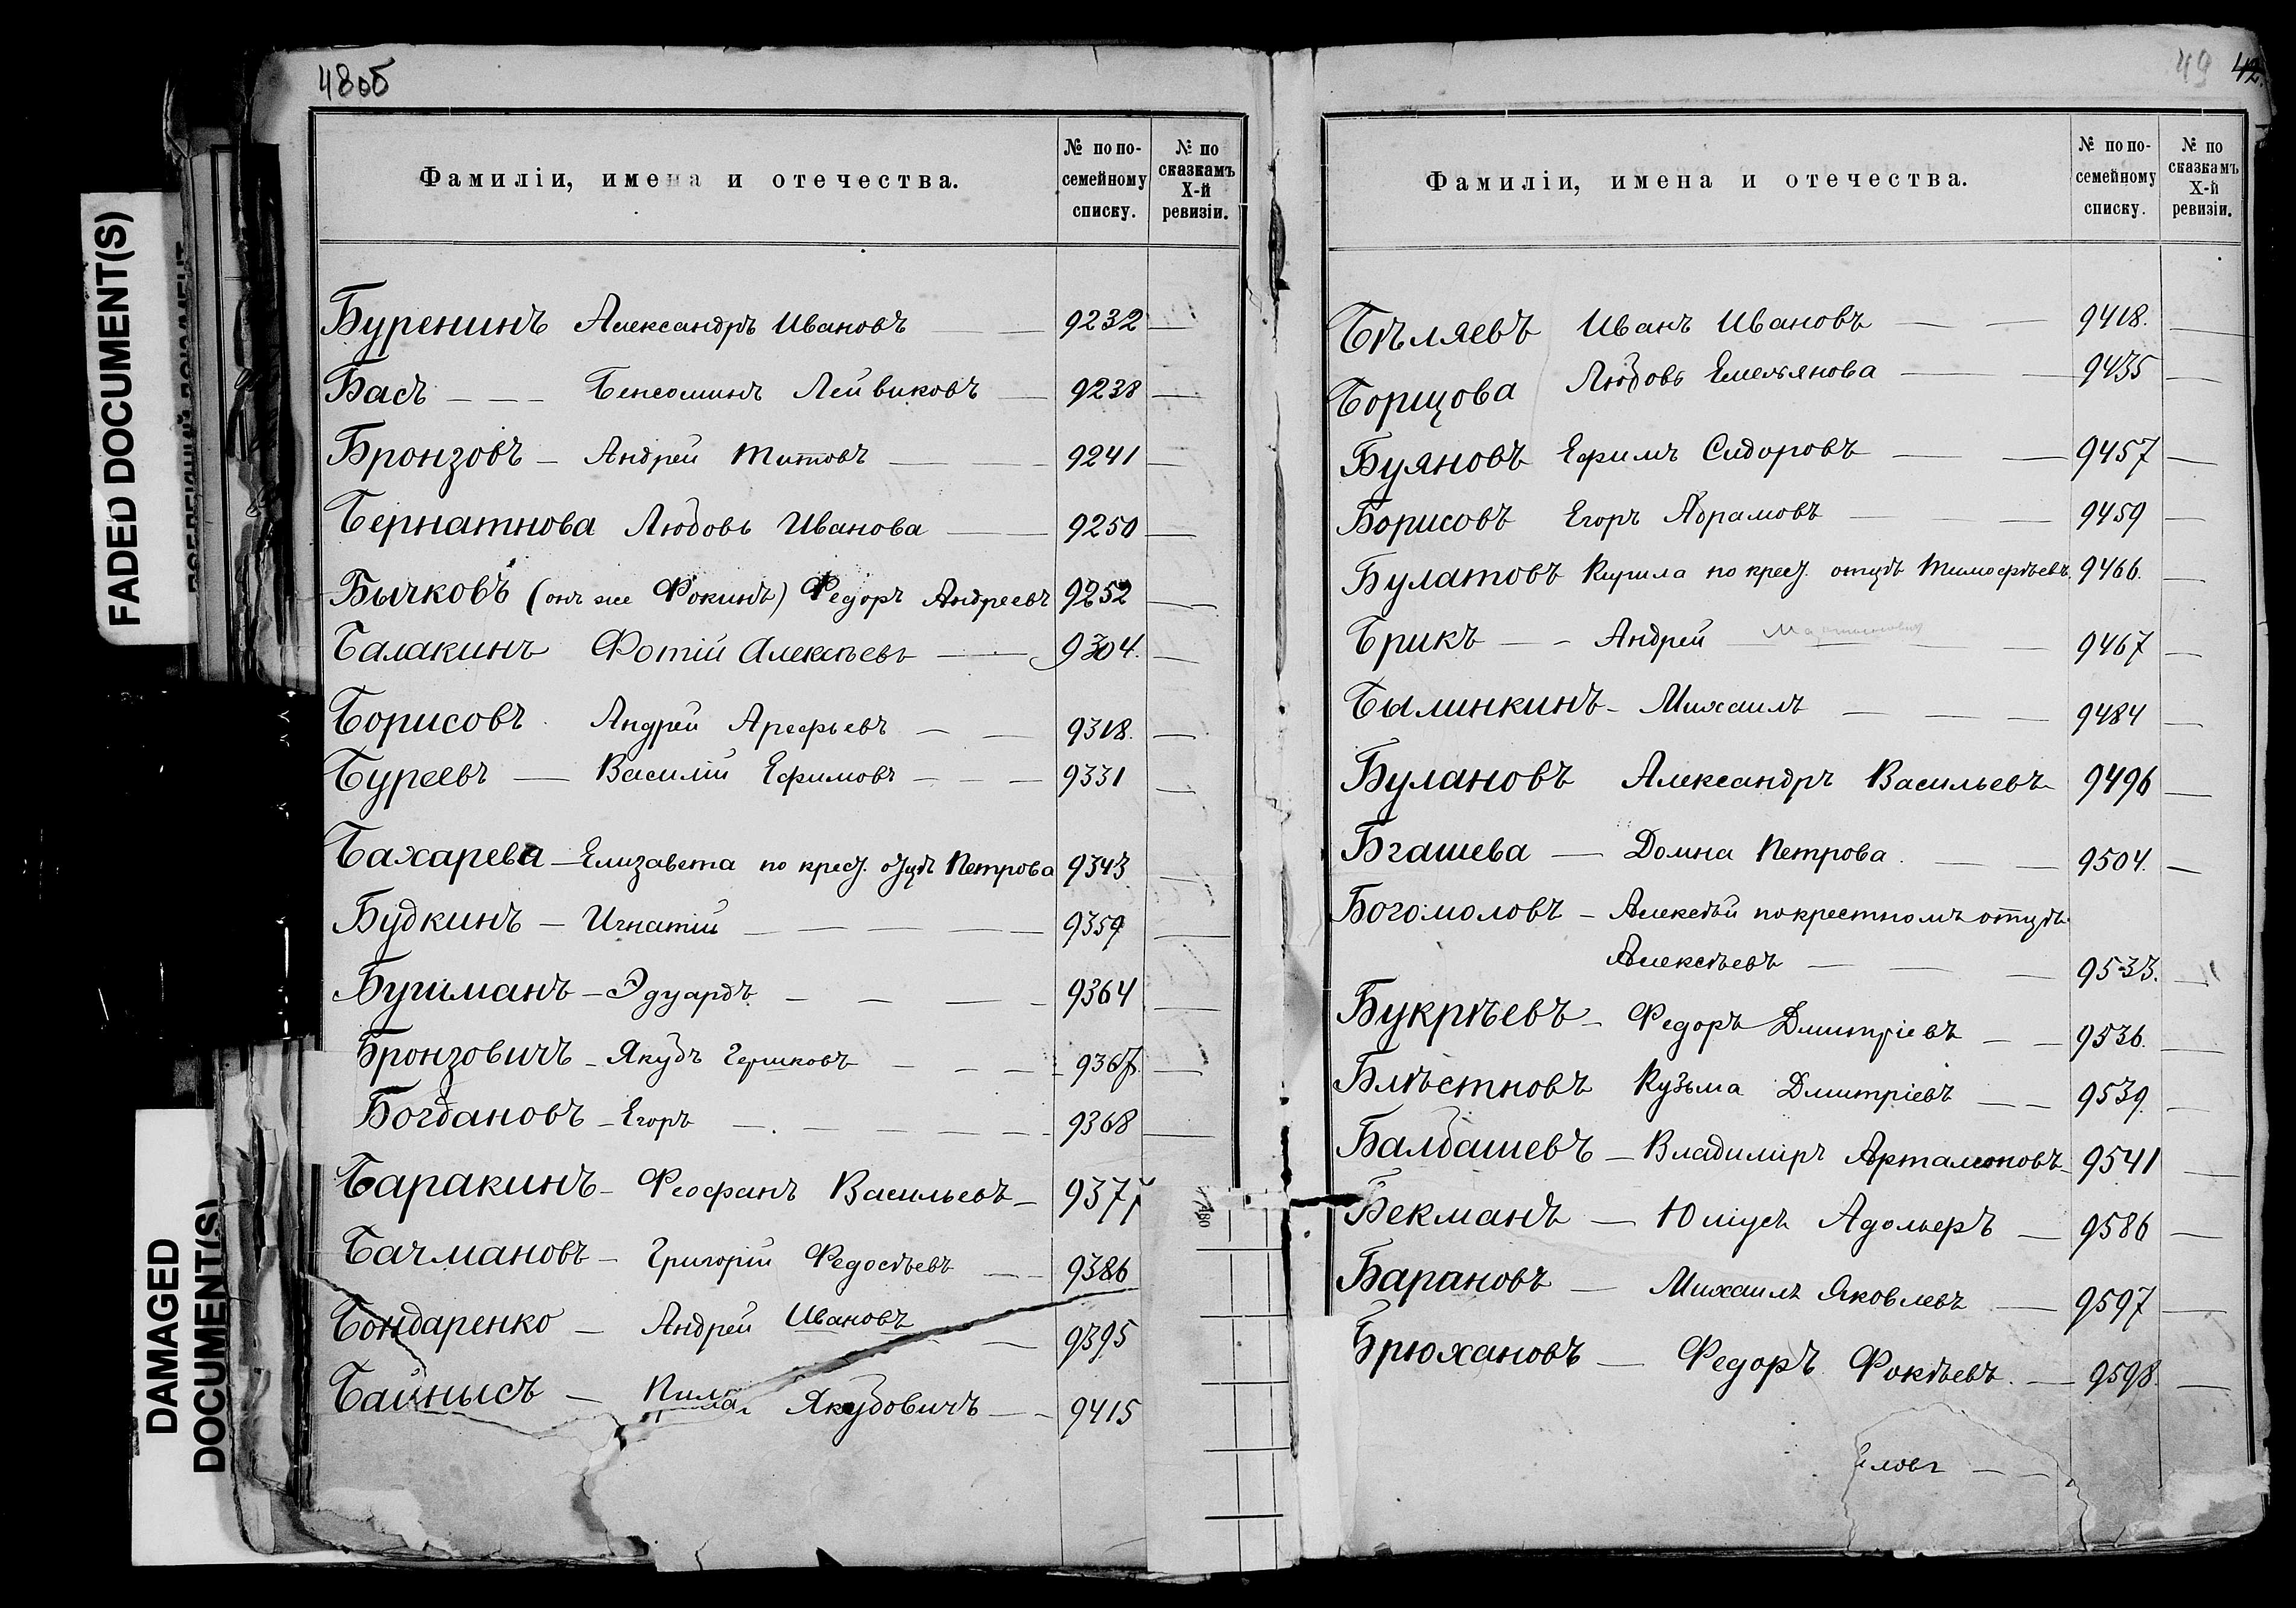 48об
Фамиліи, имена и отечества.
№ по по-
семейному
списку.
№ по
сказкамъ
X-й
ревизіи.
Буренинъ Александръ Ивановъ — — 9232 —
Басъ — — — Бенсоминъ Лейвиковъ — 9238 —
Бронзовъ — Андрей Титовъ — — 9241 —
Бернатнова Любовь Иванова — — 9250 —
Бычковъ (онъ же Фокинъ) Федоръ Андреевъ 9252 —
Балакинъ Фотій Алексѣевъ — — 9304. —
Борисовъ Андрей Арефьевъ — — 9318. —
Буреевъ — Василій Ефимовъ — — — 9331 —
Бахарева — Елизавета по крест. отцѣ Петрова 9343 —
Будкинъ — Игнатій — — — — — 9359 —
Бушманъ — Эдуардъ — — — — 9364 —
Бронзовичъ — Якубъ Гершковъ — — — 9367. —
Богдановъ — Егоръ — — — — — — 9368 —
Баракинъ — Феофанъ Васильевъ — 9377
Бачмановъ — Григорій Федосѣевъ — — 9386
Бондаренко — Андрей Ивановъ — — 9395
Байнысъ — Якубовичъ — — 9415
FADED DOCUMENT(S)
DAMAGED
DOCUMENT(S)
49 42.
Фамиліи, имена и отечества.
№ по по-
семейному
списку.
№ по
сказкамъ
X-й
ревизіи.
Бѣляевъ Иванъ Ивановъ — — 9418. —
Борщова Любовь Емельянова — — 9435 —
Буяновъ Ефимъ Сидоровъ — — 9457 —
Борисовъ Егоръ Абрамовъ — — — 9459 —
Булатовъ Кирила по крест. отцѣ Тимофѣевъ 9466. —
Брикъ — — Андрей — Мартиновичъ — — 9467 —
Былинкинъ — Михаилъ — — — 9484 —
Булановъ Александръ Васильевъ — 9496 —
Бгашева — Домна Петрова. — — 9504. —
Богомоловъ — Алексѣй по крестномъ отцѣ
Алексѣевъ — — — 9533. —
Букрѣевъ — Федоръ Дмитріевъ — — 9536. —
Блѣстновъ Кузьма Дмитріевъ — — 9539. —
Балбашевъ — Владиміръ Артамоновъ — 9541 —
Бекманъ — Юліусъ Адольфъ — 9586 —
Барановъ — Михаилъ Яковлевъ — 9597 —
Брюхановъ — Федоръ Фокѣевъ. — 9598. —
ловъ — —